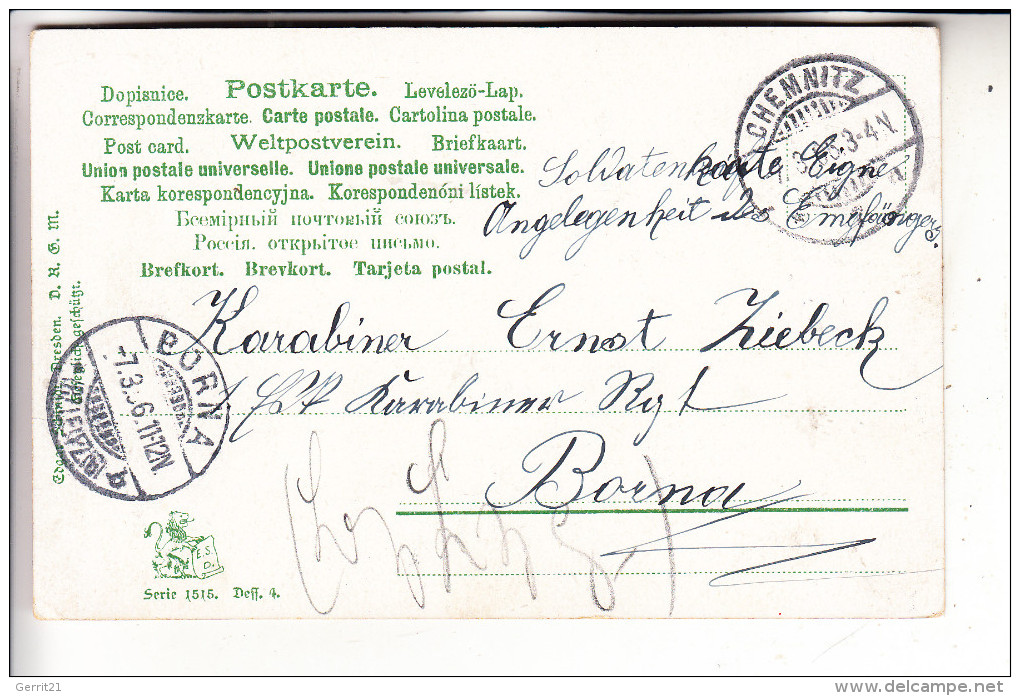 Dopisnice. Postkarte. Levelező-Lap.
Correspondenzkarte. Carte postale. Cartolina postale.
Post card. Weltpostverein. Briefkaart.
Union postale universelle. Unione postale universale.
Karta korespondencyjna. Korespondenóni lístek.
Всемірный почтовый союзъ.
Россія. открытое письмо.
Brefkort. Brevkort. Tarjeta postal.
CHEMNITZ
3-4.N.
Soldatenkarte Eigne
Angelegenheit des Empfängers.
Karabiner Ernst Ziebeck
Karabiner Rgt
Borna
BORNA
7.3. 6.11-12V.
(BZ.LEIPZIG)
a
Dresden. D. R. G. M.
geschützt.
E.S.
D.
Serie 1515. Dess. 4.
Gerrit21
delcampe.net